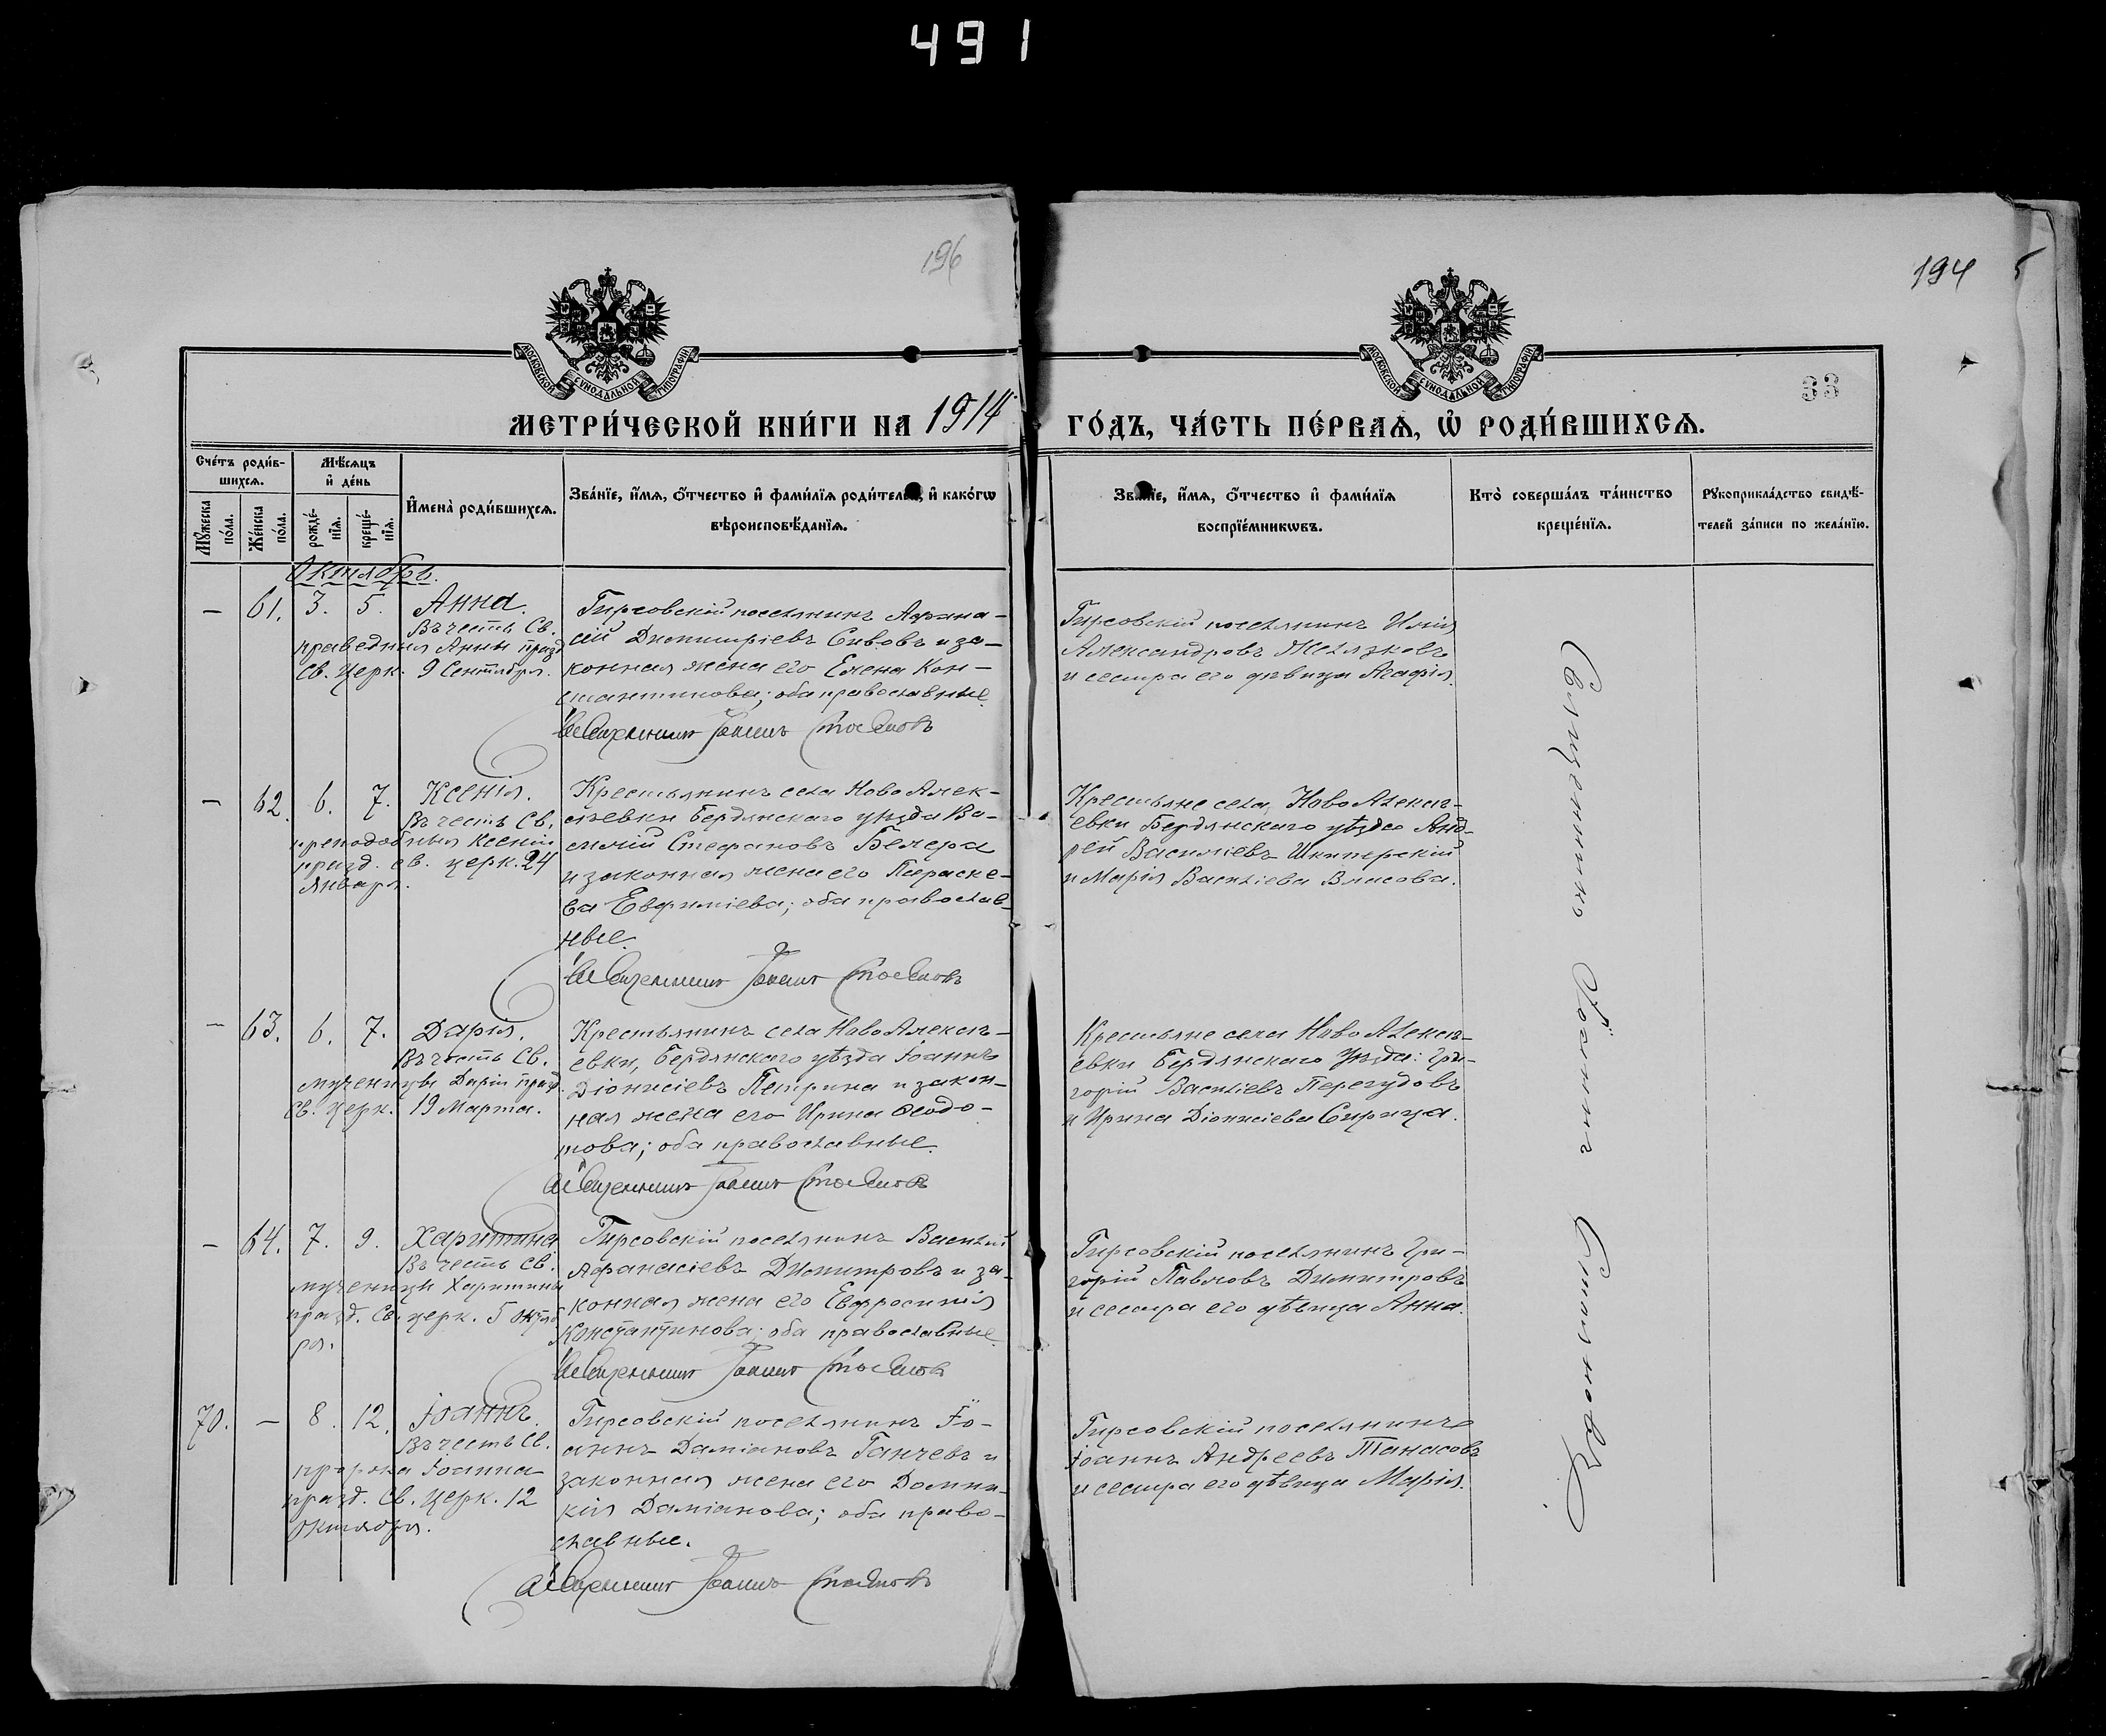 491
196
194
33
МОСКОВСКОЙ СѴНОДАЛЬНОЙ ТИПОГРАФІИ
МОСКОВСКОЙ СѴНОДАЛЬНОЙ ТИПОГРАФІИ
МЕТРИ́ЧЕСКОЙ КНИ́ГИ НА 1914
ГО́ДЪ, ЧА́СТЬ ПЕ́РВАѦ, Ѡ҆ РОДИ́ВШИХСѦ.
Сче́тъ роди́в-
шихсѧ.
Мꙋ́жеска
по́ла.
Же́нска
по́ла.
Мѣ́сѧцъ
и҆ де́нь
рожде́-
нїѧ.
креще́-
нїѧ.
И҆мена̀ роди́вшихсѧ.
Зва́нїе, и҆́мѧ, ѻ҆́тчество и҆ фами́лїѧ роди́телей, и҆ како́гѡ
вѣроисповѣ́данїѧ.
Зва́нїе, и҆́мѧ, ѻ҆́тчество и҆ фами́лїѧ
воспрїе́мникѡвъ.
Кто̀ соверша́лъ та́инство
креще́нїѧ.
Рꙋкоприкла́дство свидѣ́-
телей за́писи по жела́нїю.
Октябрь.
— 61. 3. 5. Анна.
Въ честь Св.
праведныя Анны празд
Св. Церк. 9 Сентября.
Гирсовскій поселянинъ Афана-
сій Димитріевъ Сивовъ и за-
конная жена его Елена Кон-
стантинова; оба православные.
Священникъ Іоаннъ
Гирсовскій поселянинъ Илія
Александровъ Желязковъ
и сестра его дѣвица Агафія.
— 62. 6. 7. Ксенія.
Въ честь Св.
преподобныя Ксеніи
празд. св. церк. 24
Января.
Крестьянинъ села Ново Алек-
сѣевки Бердянскаго уѣзда Ва-
силій Стефановъ Белера
и законная жена его Параске-
ва Евфиміева; оба православ-
ные.
Священникъ Іоаннъ
Крестьяне села Ново Алексѣ-
евки Бердянскаго уѣзда Анд-
рей Васильевъ Шкиперскій
и Марія Васильева Власова.
— 63. 6. 7. Дарія.
Въ честь Св.
мученицы Даріи празд.
Св. Церк. 19 Марта.
Крестьянинъ села Ново Алексѣ-
евки, Бердянскаго уѣзда Іоаннъ
Діонисіевъ Петрина и закон-
ная жена его Ирина Ѳеодо-
това; оба православные.
Священникъ Іоаннъ
Крестьяне села Ново Алексѣ-
евки Бердянскаго Уѣзда: Гри-
горій Васильевъ Перегудовъ
и Ирина Діонисіева Сирица.
— 64. 7. 9. Харитина
Въ честь Св.
мученицы Харитины
празд. Св. церк. 5 Октяб
ря.
Гирсовскій поселянинъ Василій
Афанасіевъ Димитровъ и за-
конная жена его Евфросинія
Константинова; оба православные.
Священникъ Іоаннъ
Гирсовскій поселянинъ Гри-
горій Павловъ Димитровъ
и сестра его дѣвица Анна.
70. — 8. 12. Іоаннъ.
Въ честь Св.
пророка Іоанна
празд. Св. Церк. 12
Октября.
Гирсовскій поселянинъ Іо-
аннъ Даміановъ Ганчевъ и
законная жена его Домни-
кія Даміанова; оба право-
славные.
Священникъ Іоаннъ
Гирсовскій поселянинъ
Іоаннъ Андреевъ Танасовъ
и сестра его дѣвица Марія.
Священникъ Іоаннъ